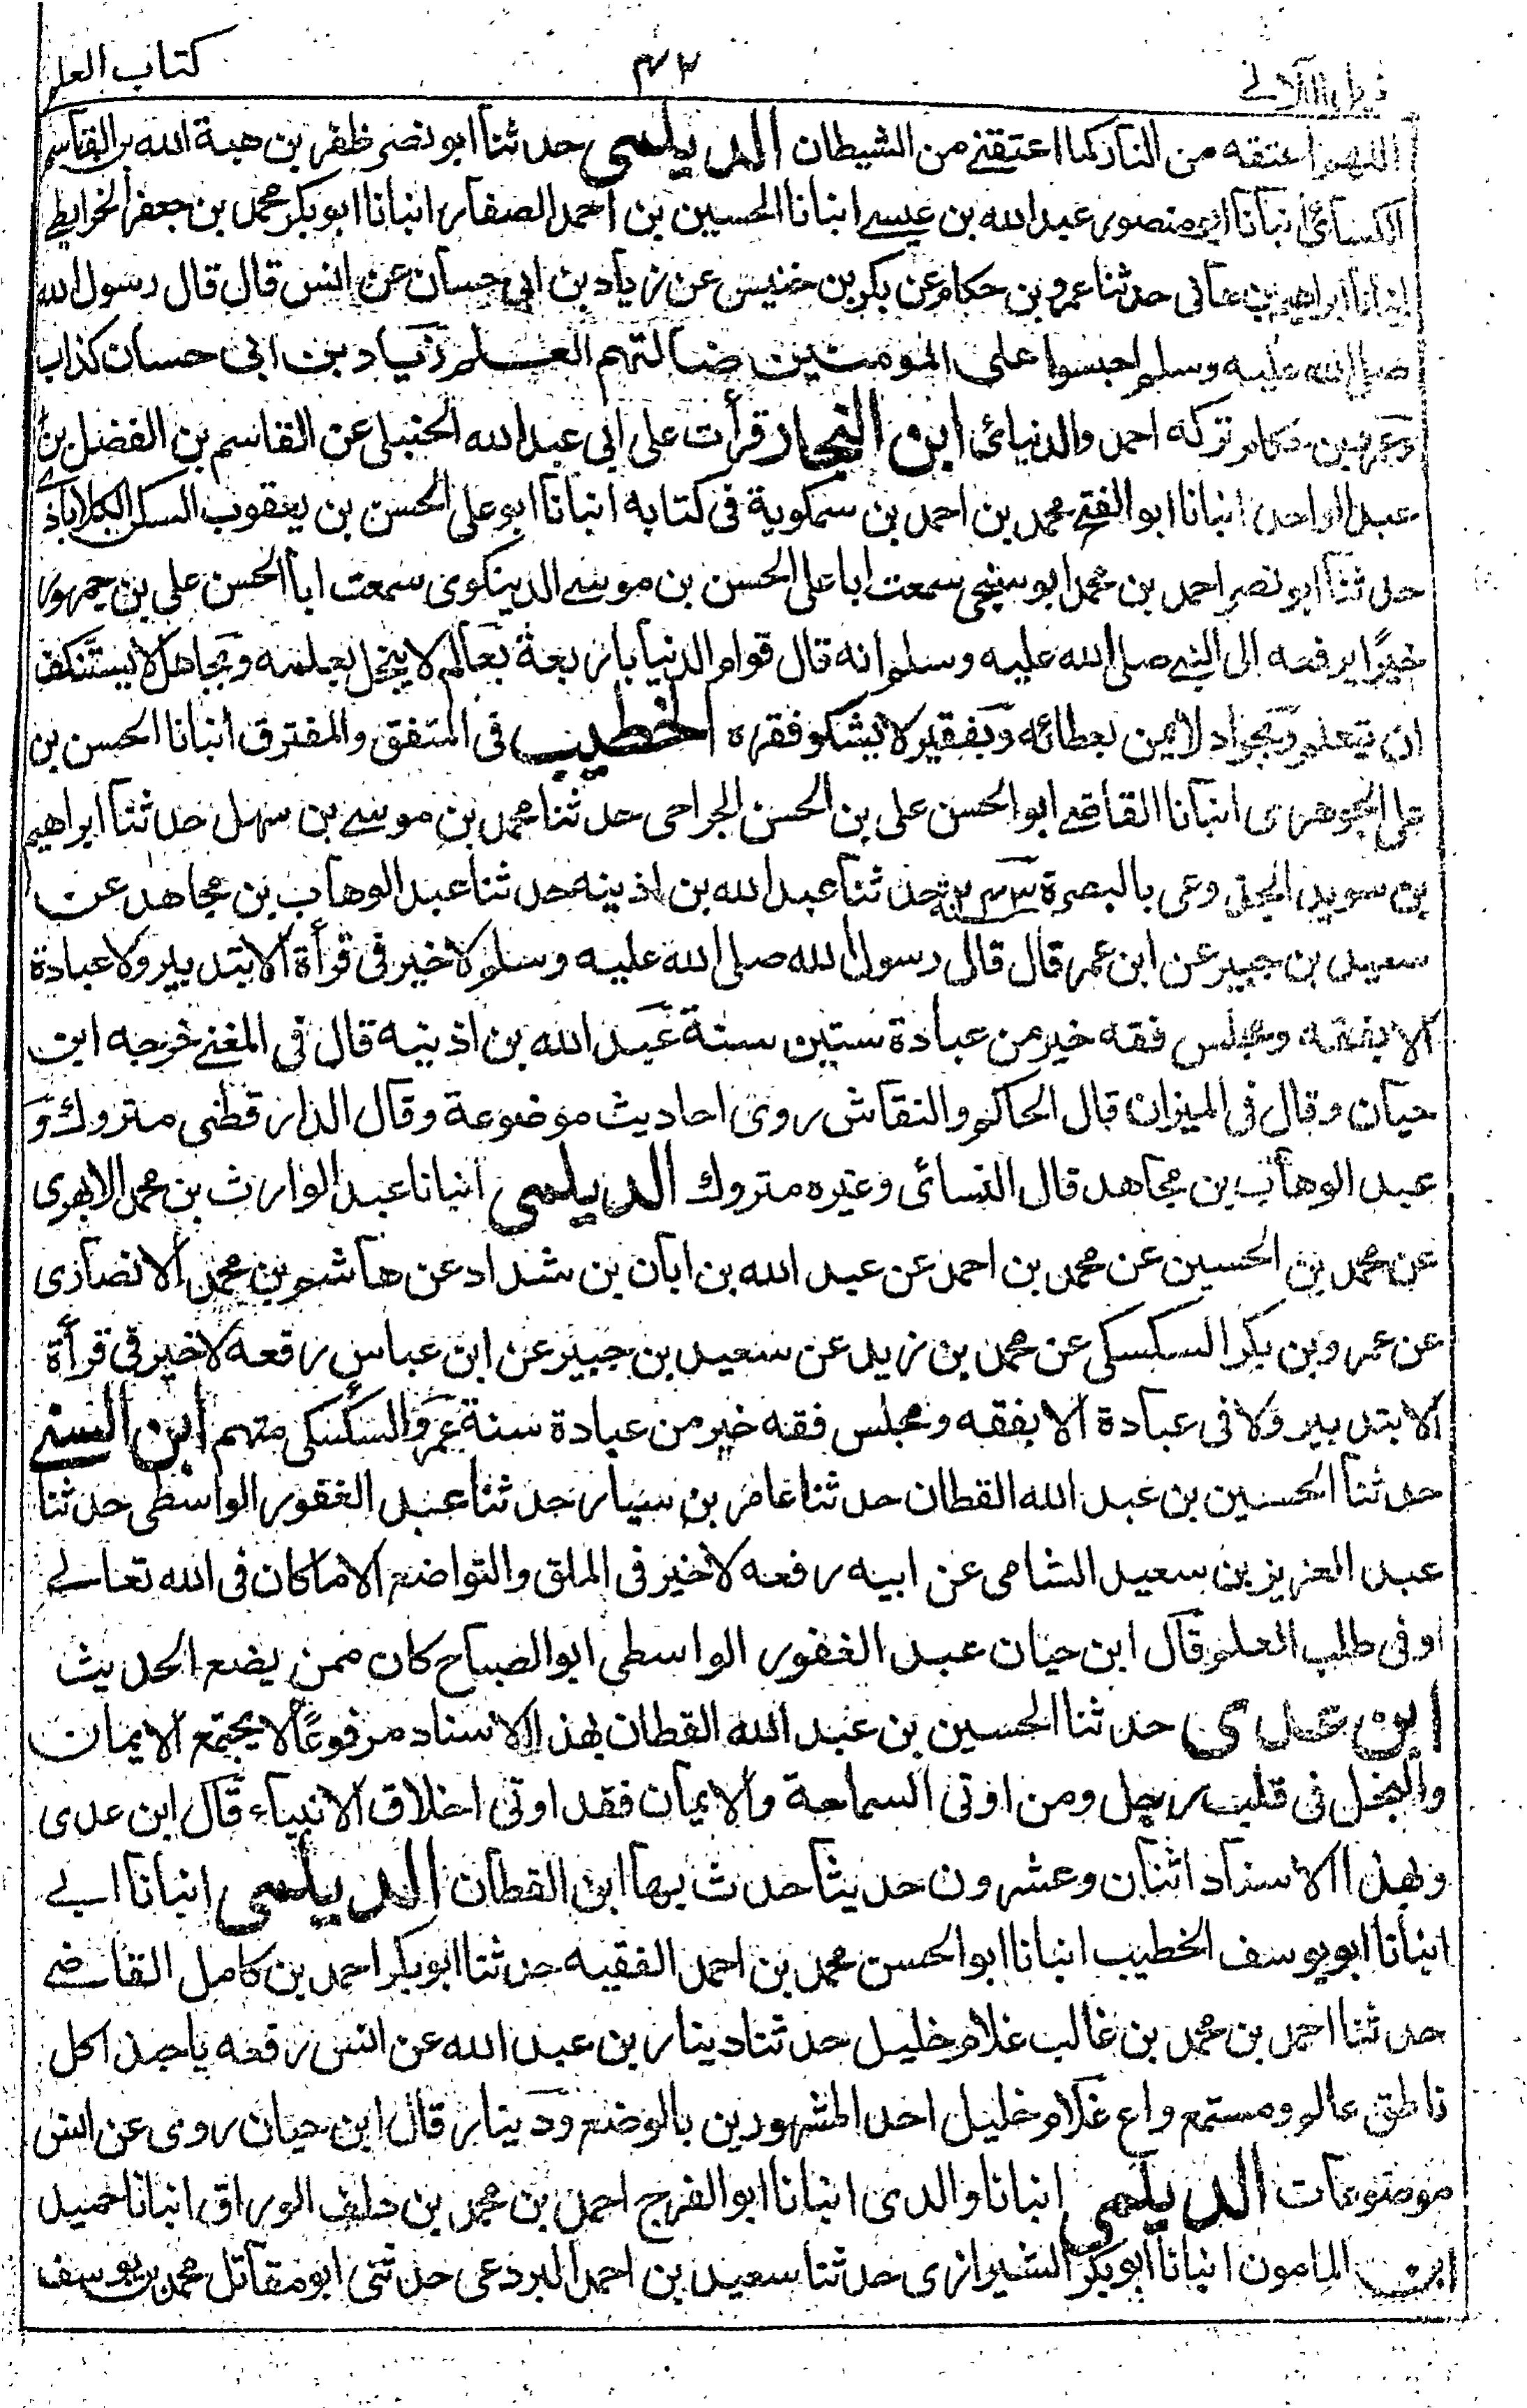 ذيل اللآلى ٤٣ كتاب العلم
اللهم اعتقه من النار كما اعتقنى من الشيطان الديلمى حدثنا ابو نصر ظفر بن هبة الله بن القاسم
الكسائى انبانا ابو منصور عبد الله بن عيسى انبانا الحسين بن احمد الصفار انبانا ابو بكر محمد بن جعفر الخرايطى
انبانا ابراهيم بن هانى حدثنا عمرو بن حكام عن بكر بن خنيس عن زياد بن ابى حسان عن انس قال قال رسول الله
صلى الله عليه وسلم احبسوا على المومنين ضالتهم العلم زياد بن ابى حسان كذاب
وعمرو بن حكام تركه احمد والنسائى ابن النجار قرأت على ابى عبد الله الحنبلى عن القاسم بن الفضل بن
عبد الواحد انبانا ابو الفتح محمد بن احمد بن سمكوية فى كتابه انبانا ابو على الحسن بن يعقوب السكن الكلاباذى
حدثنا ابو نصر احمد بن محمد ابوسنجى سمعت ابا على الحسن بن موسى الدينكوى سمعت ابا الحسن على بن جمهور
خيرا يرفعه الى النبى صلى الله عليه وسلم انه قال قوام الدنيا باربعة بعالم لا يبخل بعلمه وبجاهل لا يستنكف
ان يتعلم وبجواد لا يمن بعطائه وبفقير لا يشكو فقره الخطيب فى المتفق والمفترق انبانا الحسن بن
على الجوهرى انبانا القاضى ابو الحسن على بن الحسن الجراحى حدثنا محمد بن موسى بن سهل حدثنا ابراهيم
بن سويد الجذوعى بالبصرة حدثنا عبد الله بن اذينه حدثنا عبد الوهاب بن مجاهد عن
سعيد بن جبير عن ابن عمر قال قال رسول الله صلى الله عليه وسلم لا خير فى قرأة الا بتدبير ولا عبادة
الا بفقه ومجلس فقه خير من عبادة ستين سنة عبد الله بن اذينه قال فى المغنى خرجه ابن
حيان وقال فى الميزان قال الحاكم والنقاش روى احاديث موضوعة وقال الدارقطنى متروك و
عبد الوهاب بن مجاهد قال النسائى وغيره متروك الديلمى انبانا عبد الوارث بن محمد الابهرى
عن محمد بن الحسين عن محمد بن احمد عن عبد الله بن ابان بن شداد عن هاشم بن محمد الانصارى
عن عمرو بن بكر السكسكى عن محمد بن زيد عن سعيد بن جبير عن ابن عباس رفعه لا خير فى قرأة
الا بتدبير ولا فى عبادة الا بفقه ومجلس فقه خير من عبادة سنة عمرو السكسكى متهم ابن السنى
حدثنا الحسين بن عبد الله القطان حدثنا عامر بن سيار حدثنا عبد الغفور الواسطى حدثنا
عبد العزيز بن سعيد الشامى عن ابيه رفعه لا خير فى الملق والتواضع الا ما كان فى الله تعالى
او فى طلب العلم قال ابن حيان عبد الغفور الواسطى ابو الصباح كان ممن يضع الحديث
ابن عدى حدثنا الحسين بن عبد الله القطان بهذا الاسناد مرفوعا لا يجتمع الايمان
والبخل فى قلب رجل ومن اوتى السماحة والايمان فقد اوتى اخلاق الانبياء قال ابن عدى
وبهذا الاسناد اثنان وعشرون حديثا حدث بها ابن القطان الديلمى انبانا ابى
انبانا ابو يوسف الخطيب انبانا ابو الحسن محمد بن احمد الفقيه حدثنا ابو بكر احمد بن كامل القاضى
حدثنا احمد بن محمد بن غالب غلام خليل حدثنا دينار بن عبد الله عن انس رفعه يا حبذا كل
ناطق عالم ومستمع واع غلام خليل احد المشهورين بالوضع ودينار قال ابن حيان روى عن انس
موضوعات الديلمى انبانا والدى انبانا ابو الفرج احمد بن محمد بن خلف الوراق انبانا حميد
ابن المامون انبانا ابو بكر الشيرازى حدثنا سعيد بن احمد البردعى حدثنى ابو مقاتل محمد بن يوسف